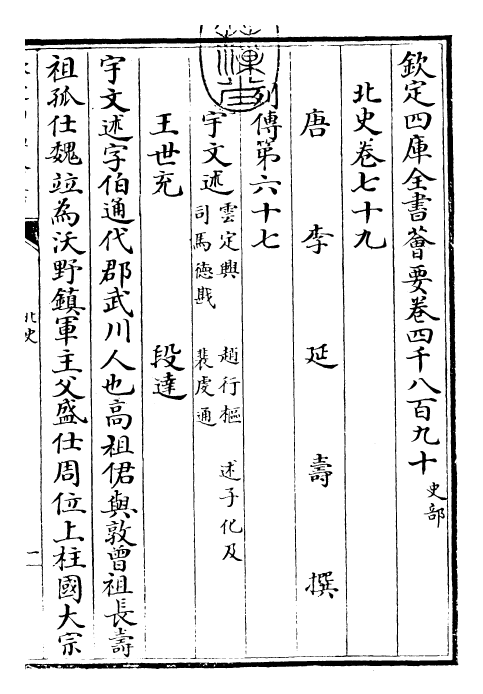 欽定四庫全書薈要卷四千八百九十 史部
北史卷七十九
唐 李 延 壽 撰
列傳第六十七
宇文述 雲定興 趙行樞 述子化及
司馬德戡 裴虔通
王世充 段達
宇文述字伯通代郡武川人也高祖侰與敦曾祖長壽
祖孤仕魏竝為沃野鎮軍主父盛仕周位上柱國大宗
北史
一